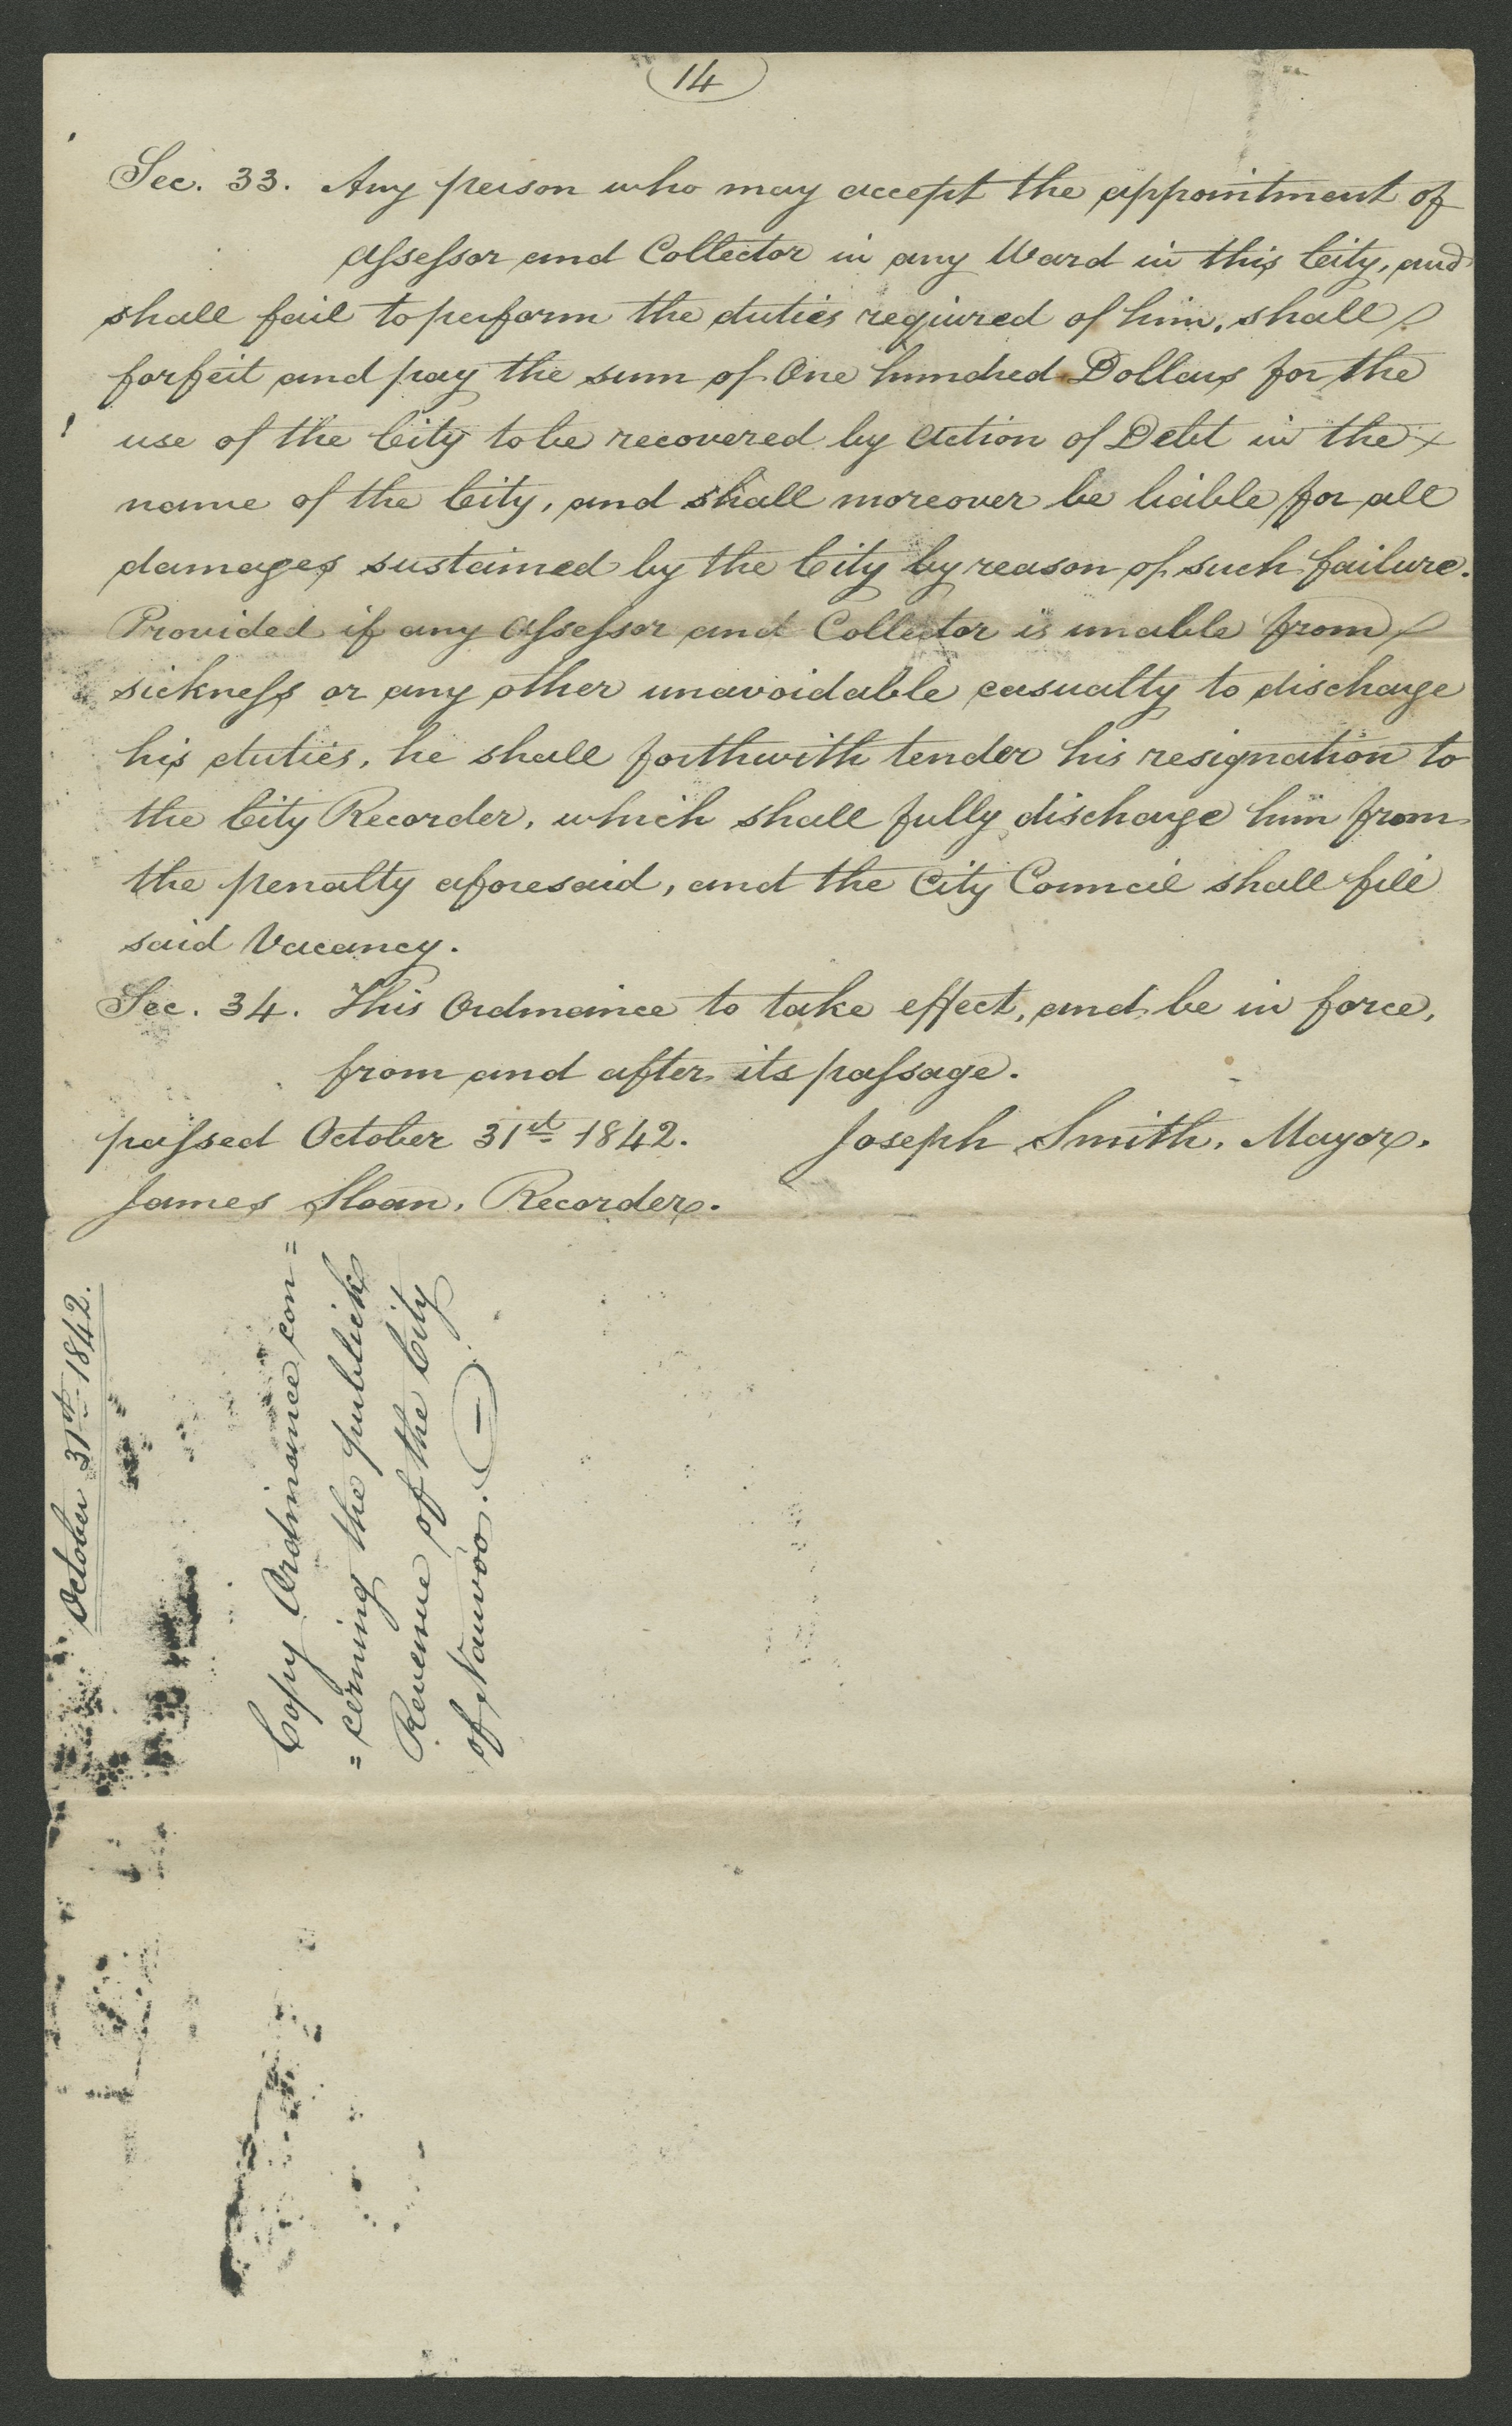 14
Sec. 33. Any person who may accept the appointment of
Assessor and Collector in any Ward in this City, and
shall fail to perform the duties required of him, shall
forfeit and pay the sum of One hundred Dollars for the
use of the City to be recovered by Action of Debt in the
name of the City, and shall moreover be liable for all
damages sustained by the City by reason of such failure.
Provided if any Assessor and Collector is unable from
sickness or any other unavoidable casualty to discharge
his duties, he shall forthwith tender his resignation to
the City Recorder, which shall fully discharge him from
the penalty aforesaid, and the City Council shall fill
said Vacancy.
Sec. 34. This Ordinance to take effect, and be in force,
from and after its passage.
passed October 31st 1842. Joseph Smith, Mayor.
James Sloan, Recorder.
October 31st 1842.
Copy Ordinance con=
=cerning the publick
Revenue of the City
of Nauvoo.